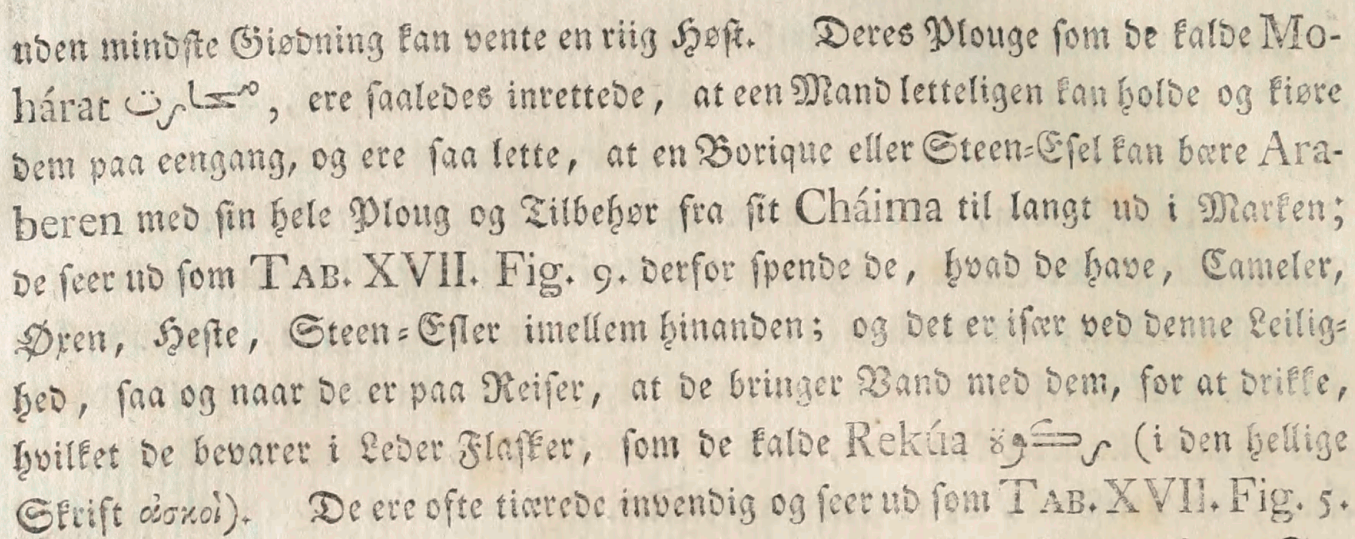 uden mindste Giødning kan vente en riig Høst. Deres Plouge som de kalde Mo-
hárat محارث, ere saaledes inrettede, at een Mand letteligen kan holde og kiøre
dem paa eengang, og ere saa lette, at en Borique eller Steen-Esel kan bære Ara-
beren med sin hele Ploug og Tilbehør fra sit Cháima til langt ud i Marken;
de seer ud som TAB. XVII. Fig. 9. derfor spende de, hvad de have, Cameler,
Øxen, Heste, Steen-Esler imellem hinanden; og det er især ved denne Leilig-
hed, saa og naar de er paa Reiser, at de bringer Vand med dem, for at drikke,
hvilket de bevarer i Leder Flasker, som de kalde Rekúa ركوة (i den hellige
Skrift ἀσκοὶ). De ere ofte tiærede invendig og seer ud som TAB. XVII. Fig. 5.